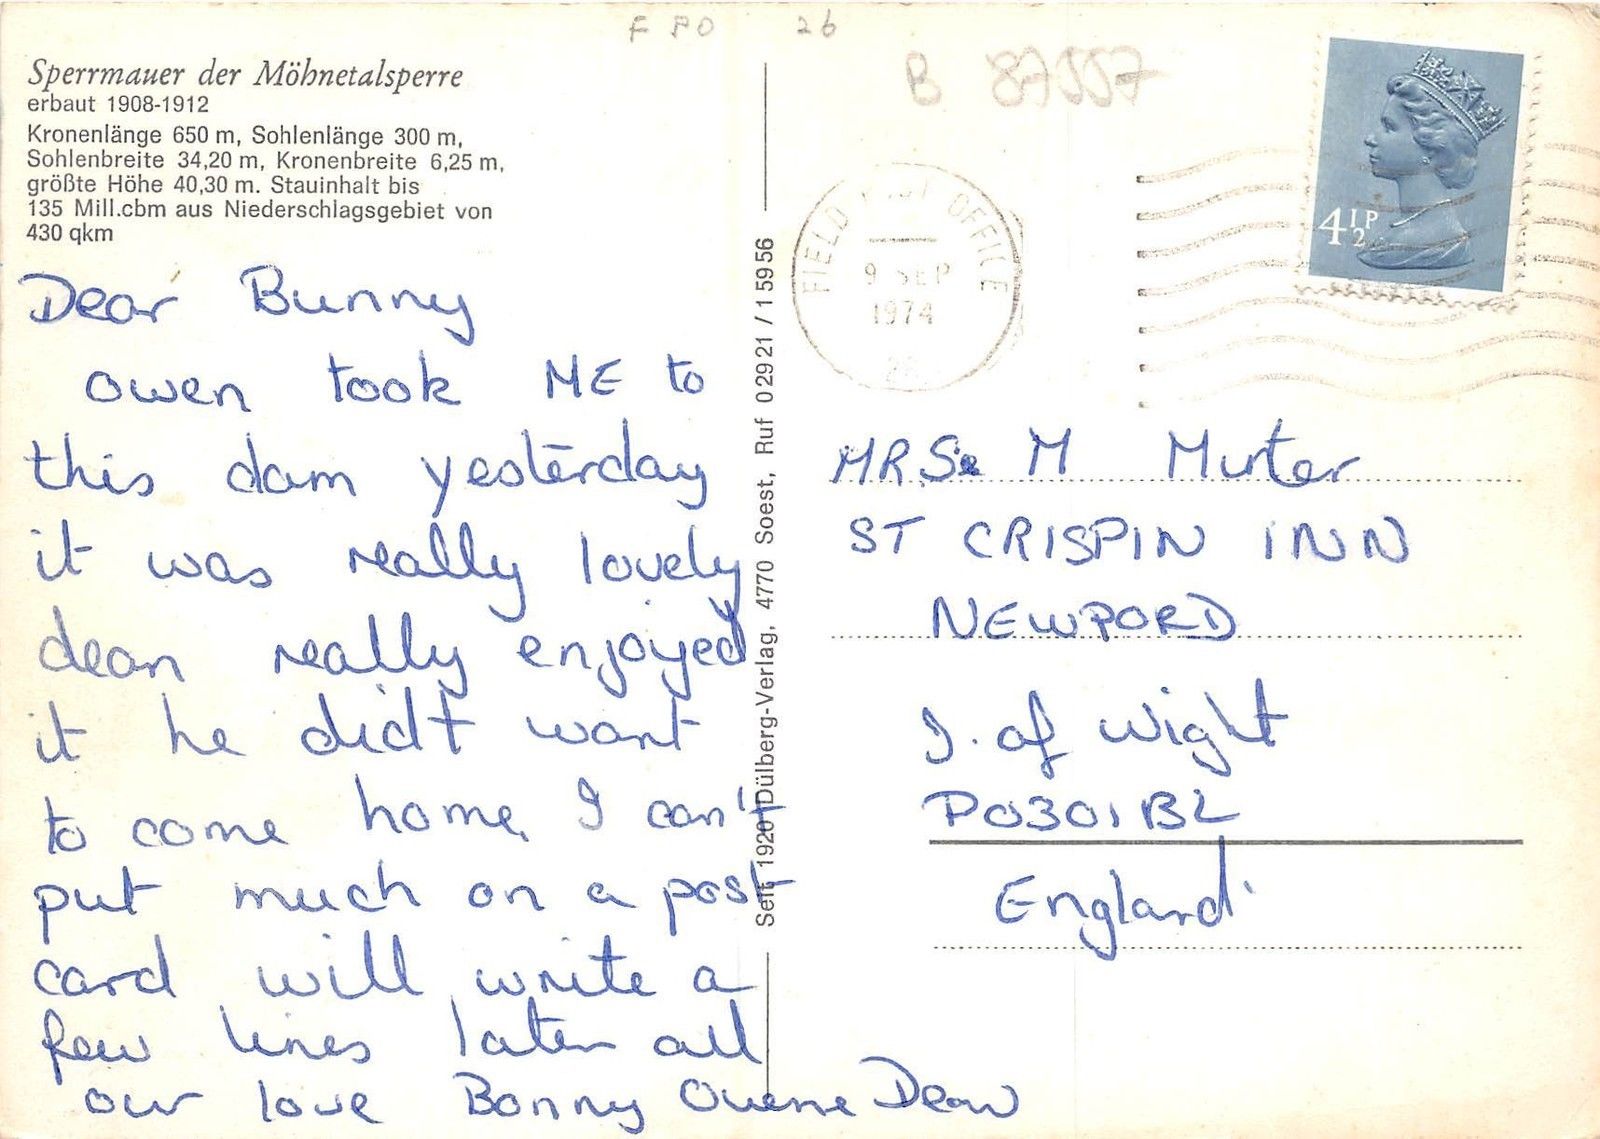 F PO 26
B 87557
Sperrmauer der Möhnetalsperre
erbaut 1908-1912
Kronenlänge 650 m, Sohlenlänge 300 m,
Sohlenbreite 34,20 m, Kronenbreite 6,25 m,
größte Höhe 40,30 m. Stauinhalt bis
135 Mill.cbm aus Niederschlagsgebiet von
430 qkm
Dear Bunny
owen took ME to
this dam yesterday
it was really lovely
dean really enjoyed
it he didt want
to come home, I can't
put much on a post
card will write a
few lines later all
our love Bonny Owene Dean
Seit 1920 Dülberg-Verlag, 4770 Soest, Ruf 0 29 21 / 1 59 56
FIELD POST OFFICE
9 SEP
1974
4½P
MRS M Murter
ST CRISPIN INN
NEWPORD
I. of Wight
PO301BL
England